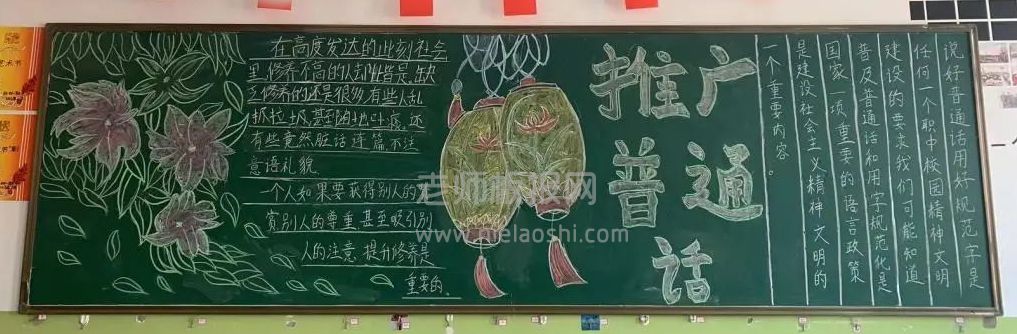 在高度发达的此刻社会
里,修养不高的人却比皆是,缺
乏修养的还是很多,有些人乱
抓垃圾,甚到随地吐痰,还
有些竟然脏话连篇,不注
意语礼貌
一个人如果要获得别人的
赏别人的尊重,甚至吸引别
人的注意,提升修养是
重要的。
推广
普通
话
说好普通话用好规范字是
任何一个职中校园精神文明
建设的要求我们可能知道
普及普通话和用字规范化是
国家一项重要的语言政策
是建设社会主义精神文明的
一个重要内容
老师板设网
www.mielaoshi.com